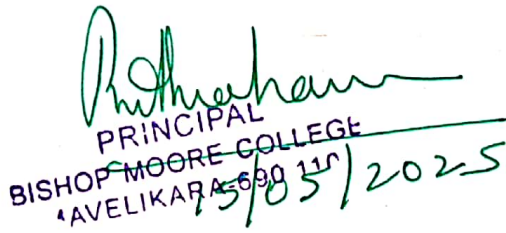 PRINCIPAL
BISHOP MOORE COLLEGE
AVELIKARA-690 11
15/05/2025